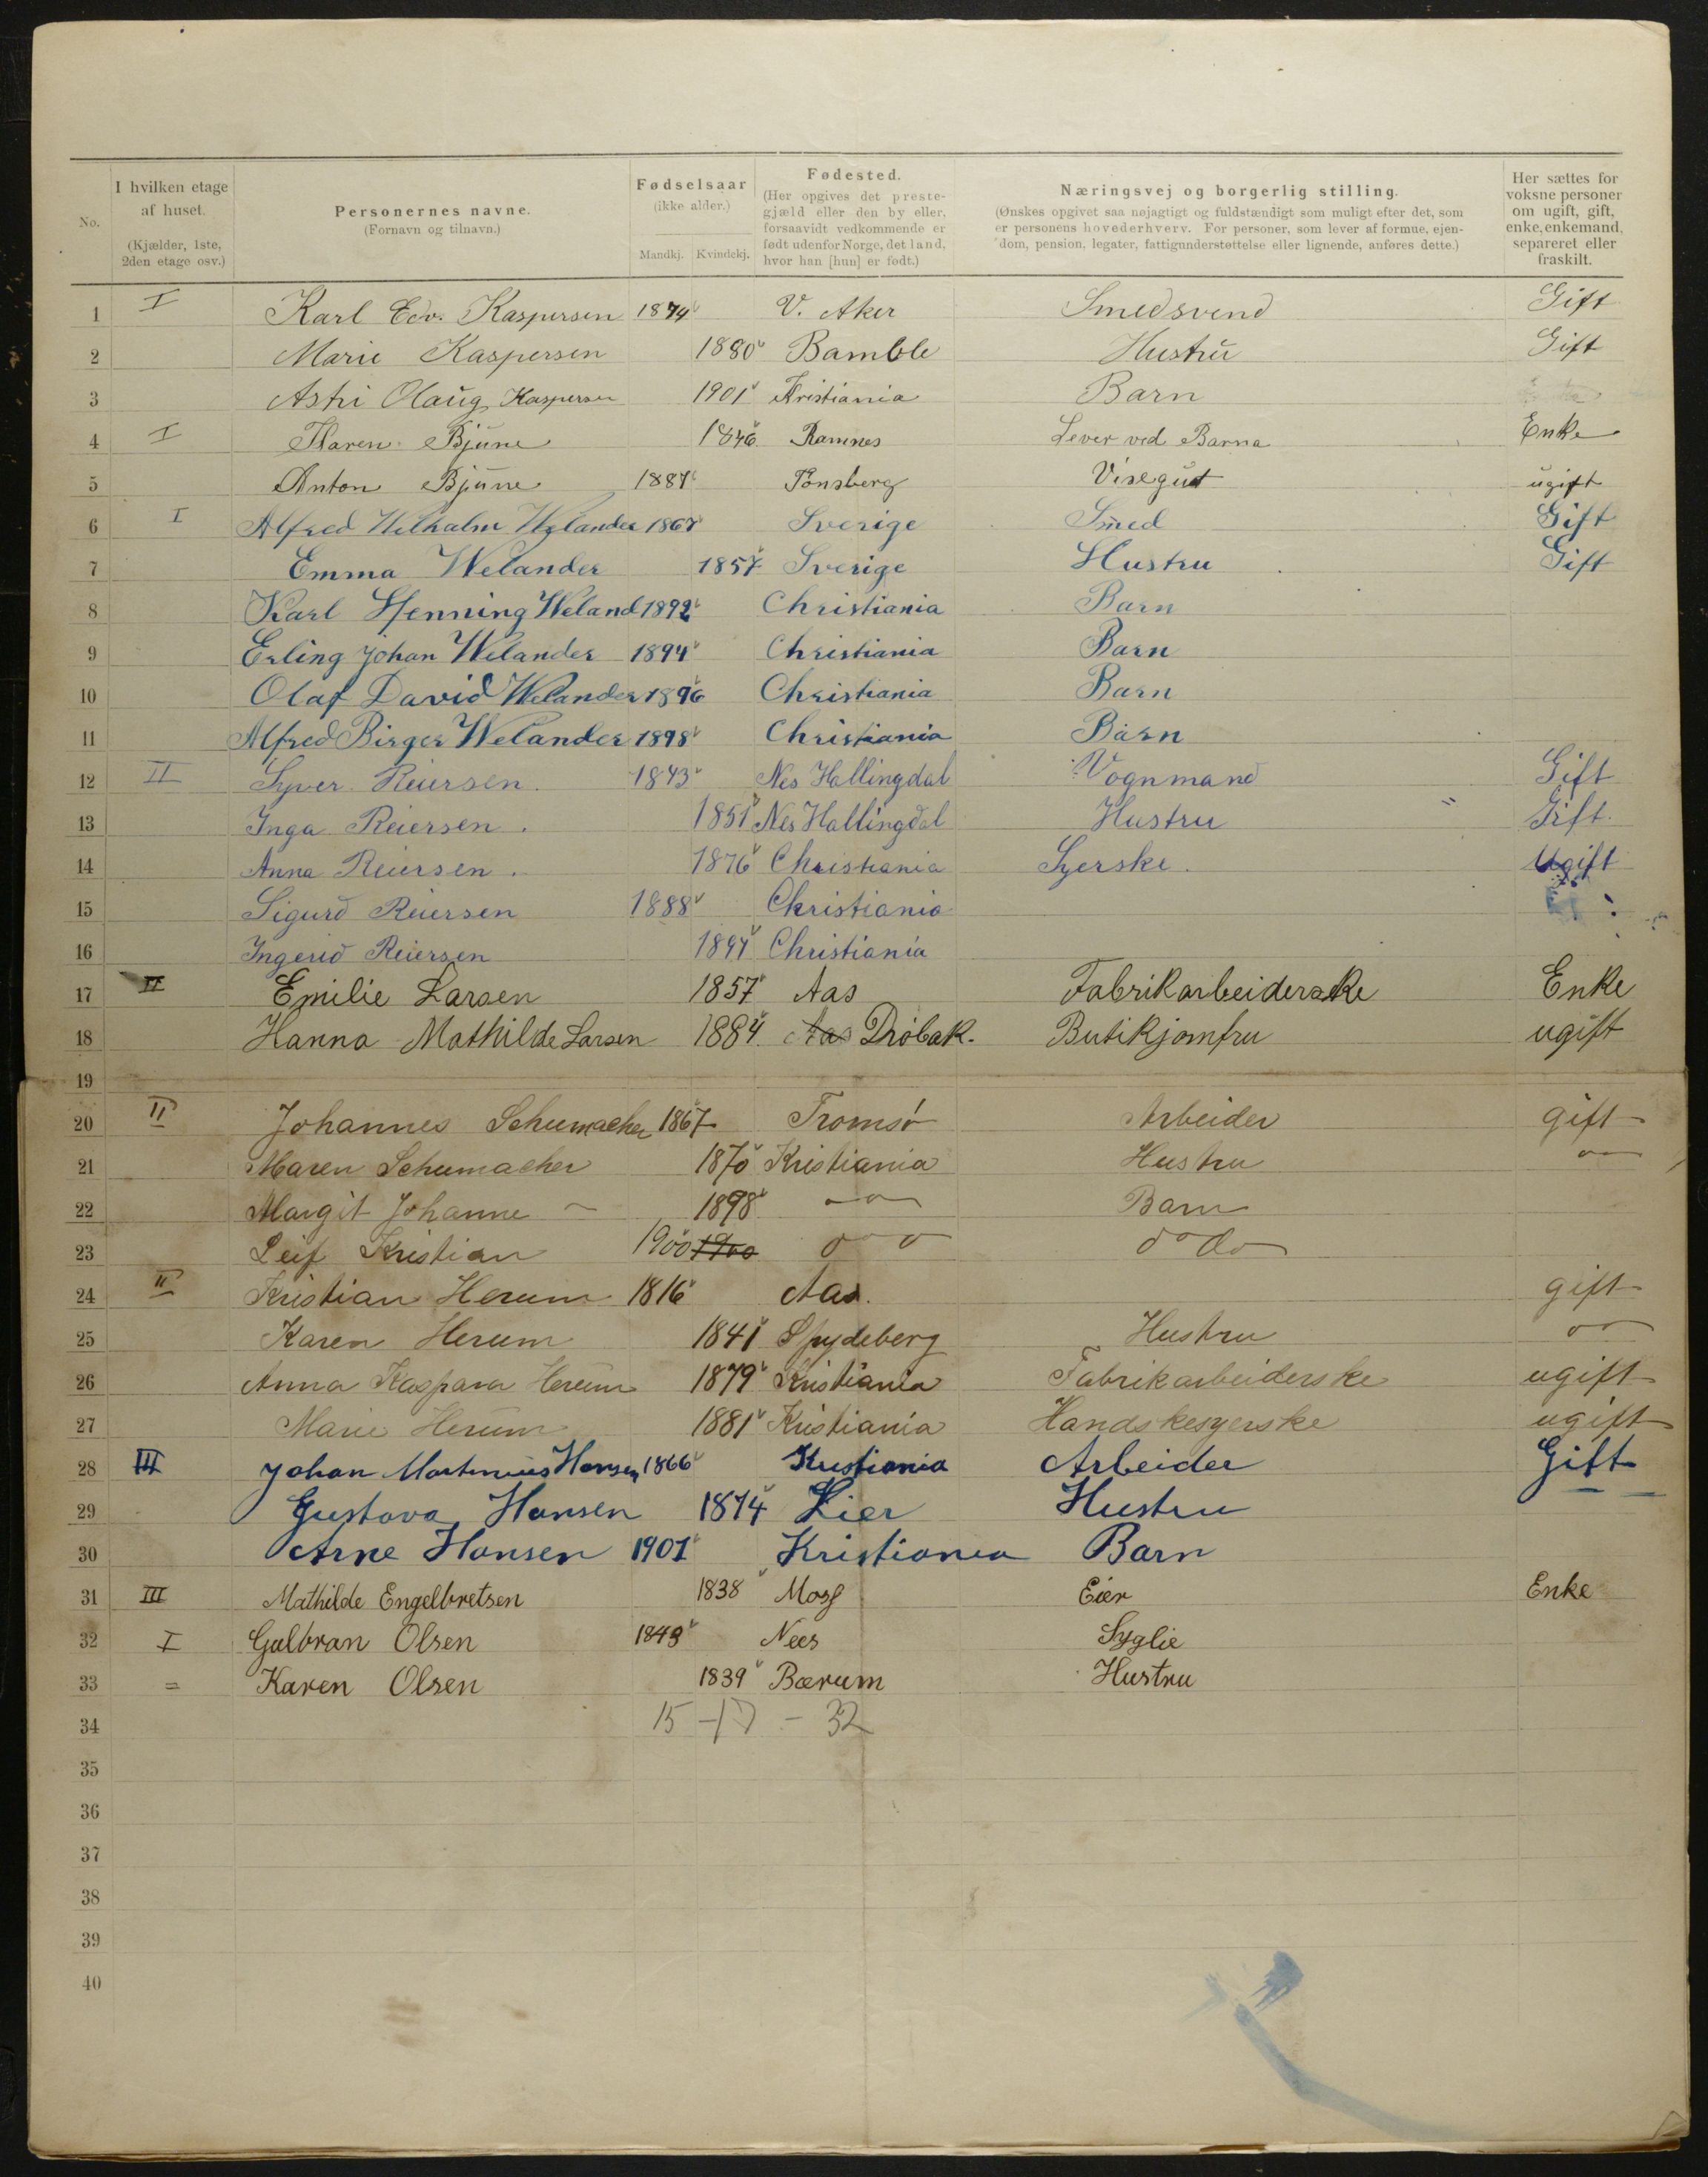 No. I hvilken etage af huset. (Kjælder, 1ste, 2den etage osv.) Personernes navne. (Fornavn og tilnavn.) Fødselsaar (ikke alder.) Mandkj. Kvindekj. Fødested. (Her opgives det prestegjæld eller den by eller, forsaavidt vedkommende er født udenfor Norge, det land, hvor han [hun] er født.) Næringsvej og borgerlig stilling. (Ønskes opgivet saa nøjagtigt og fuldstændigt som muligt efter det, som er personens hovederhverv. For personer, som lever af formue, ejendom, pension, legater, fattigunderstøttelse eller lignende, anføres dette.) Her sættes for voksne personer om ugift, gift, enke, enkemand, separeret eller fraskilt.
1 I Karl Edv. Kaspersen 1874 V. Aker Smedsvend Gift
2 Marie Kaspersen 1880 Bamble Hustru Gift
3 Astri Olaug Kaspersen 1901 Kristiania Barn
4 I Maren Bjune 1846 Ramnes Lever ved Barna Enke
5 Anton Bjune 1887 Tønsberg Visegut ugift
6 I Alfred Wilhalm Welander 1867 Sverige Smed Gift
7 Emma Welander 1857 Sverige Hustru Gift
8 Karl Henning Weland 1892 Christiania Barn
9 Erling Johan Welander 1894 Christiania Barn
10 Olaf David Welander 1896 Christiania Barn
11 Alfred Birger Welander 1898 Christiania Barn
12 II Syver Reiersen. 1843 Nes Hallingdal Vognmand Gift
13 Inga Reiersen. 1851 Nes Hallingdal Hustru " Gift.
14 Anna Reiersen. 1876 Christiania Syerske. Ugift
15 Sigurd Reiersen 1888 Christiania
16 Ingerid Reiersen 1894 Christiania
17 II Emilie Larsen 1857 Aas Fabrikarbeiderske Enke
18 Hanna Mathilde Larsen 1884. Aas Drøbak. Butikjomfru ugift
19
20 II Johannes Schumacher 1867 Tromsø Arbeider gift
21 Maren Schumacher 1870 Kristiania Hustru
22 Margit Johanne 1898 Barn
23 Leif Kristian 1900 1900
24 II Kristian Herum 1816 Aas. gift
25 Karen Herum 1841 Spydeberg Hustru
26 Anna Kaspara Herum 1879 Kristiania Fabrikarbeiderske ugift
27 Marie Herum 1881 Kristiania Handskesyerske ugift
28 III Johan Martinius Hansen 1866 Kristiania Arbeider Gift
29 Gustava Hansen 1874 Lier Hustru
30 Arne Hansen 1901 Kristiania Barn
31 III Mathilde Engelbretsen 1838 Moss Eier Enke
32 I Gulbran Olsen 1843 Nees
33 = Karen Olsen 1839 Bærum Hustru
34 15 - 17 - 32
35
36
37
38
39
40